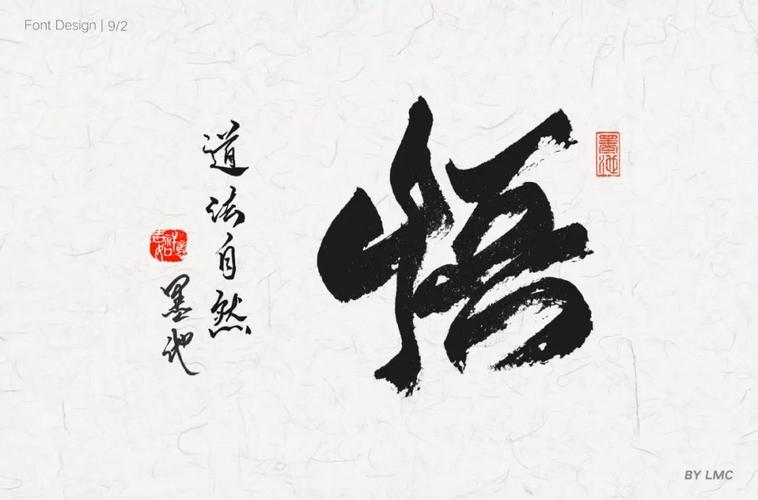 Font Design | 9/2
悟
道法自然
墨池
墨池
BY LMC